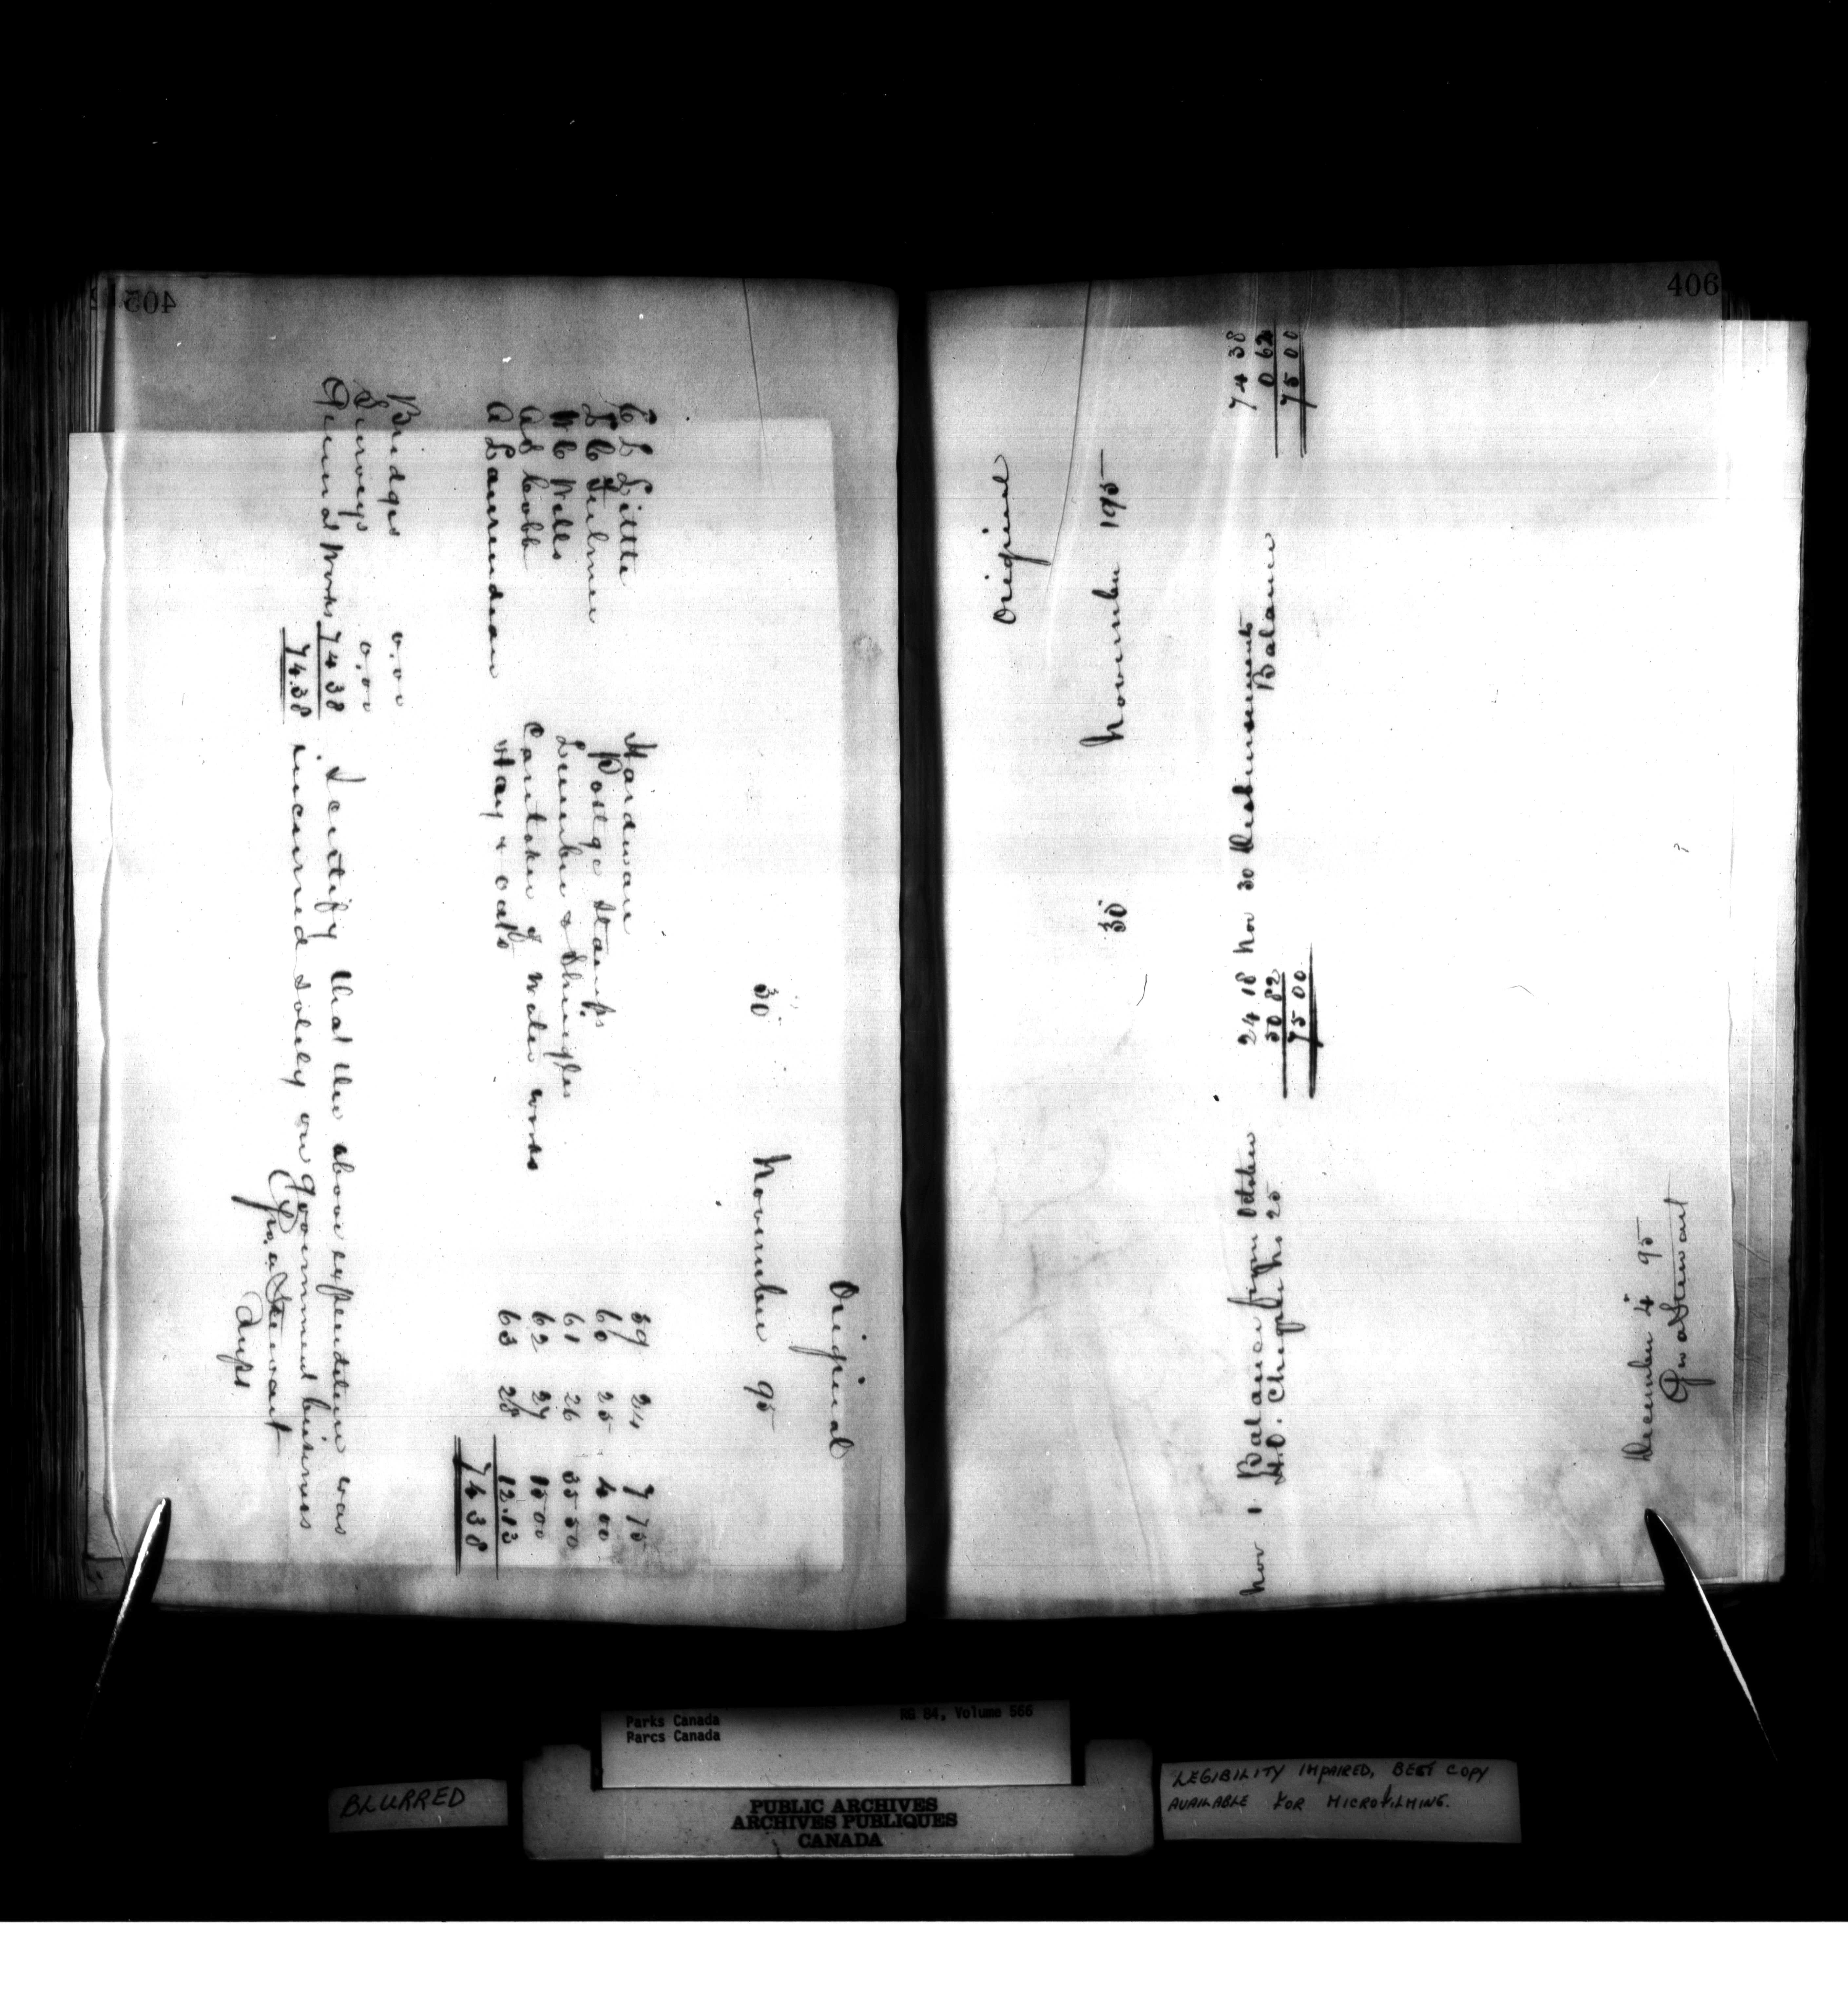 405
Original
30 November 95
C L Little Hardware 59 24 7 75
L C Fulmer Postge Stamps 60 25 4 00
W C Wells Lumber & Shingles 61 26 35 50
A J Cobb Caretaker of Water works 62 27 15 00
A Laurendeau Hay & oats 63 28 12.13
74 38
Bridges 0.00
Surveys 0.00
General Works 74 38
74.38
I certify that the above expenditure was
incurred solely on government business
Geo. A Stewart
Supt
406
Original
30 November 1895
Nov 1 Balance from October 24 18 Nov 30 Disbursements 74 38
H.O. Cheque No 25 50 82 Balance 0 62
75 00 75 00
December 4 95
Geo A Stewart
Parks Canada RG 84, Volume 566
Parcs Canada
BLURRED
PUBLIC ARCHIVES
ARCHIVES PUBLIQUES
CANADA
LEGIBILITY IMPAIRED, BEST COPY
AVAILABLE FOR MICROFILMING.